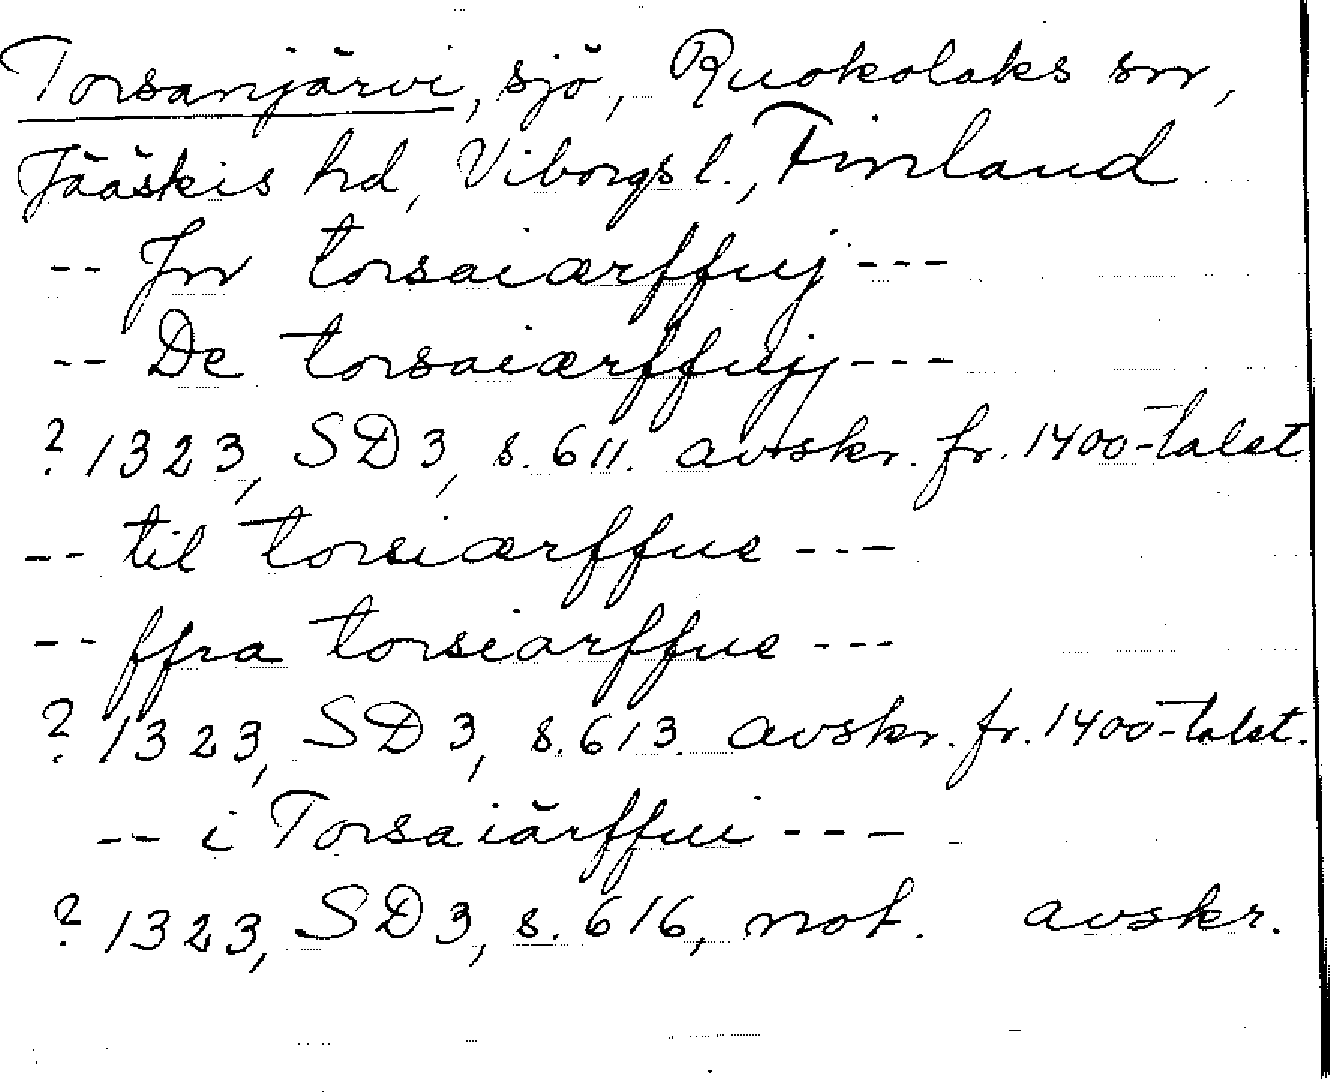 Torsanjärvi, sjö, Ruokolaks sn,
Jääskis hd, Viborgs l., Finland
-- Jnr torsaiærffuj ---
-- De torsaiærffujj ---
? 1323, SD 3, s. 611. avskr. fr. 1400-talet
-- til torsiærffue ---
-- ffra torsiarffue ---
? 1323, SD 3, s. 613. avskr. fr. 1400-talet.
-- i Torsaiärffui ---
? 1323, SD 3, s. 616, not. avskr.